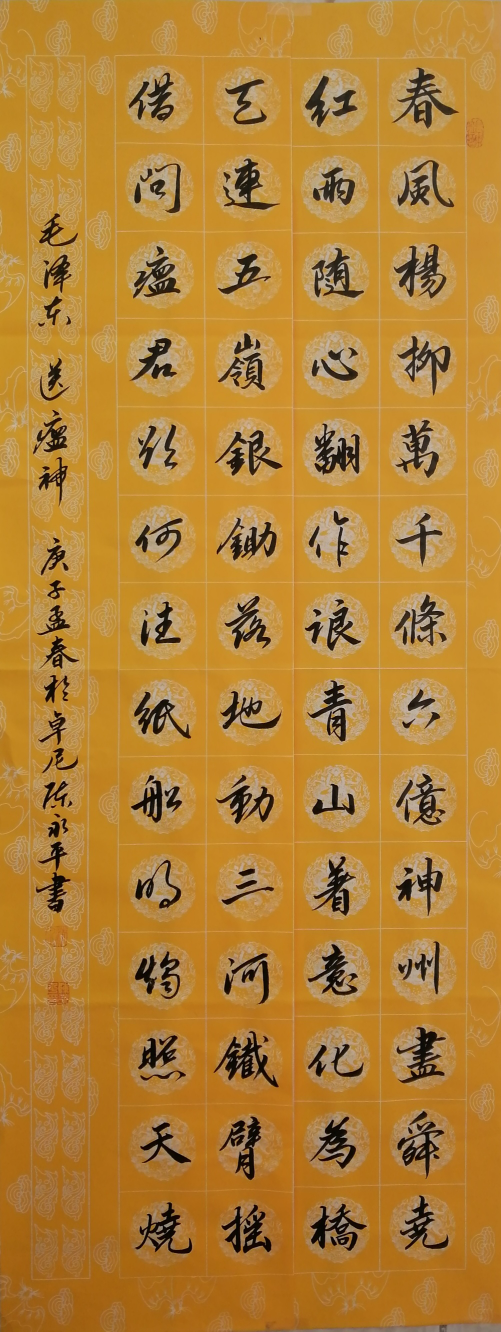 春風楊柳萬千條六億神州盡舜堯
紅雨随心翻作浪青山着意化為橋
天連五嶺銀鋤落地動三河鐵臂摇
借問瘟君欲何往紙船明燭照天燒
毛泽东 送瘟神 庚子孟春於卓尼陈永平書